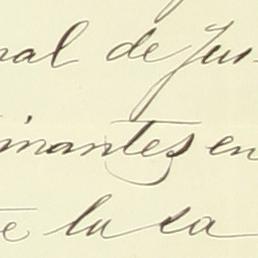 nal de Jus-
inantes en
te la sa